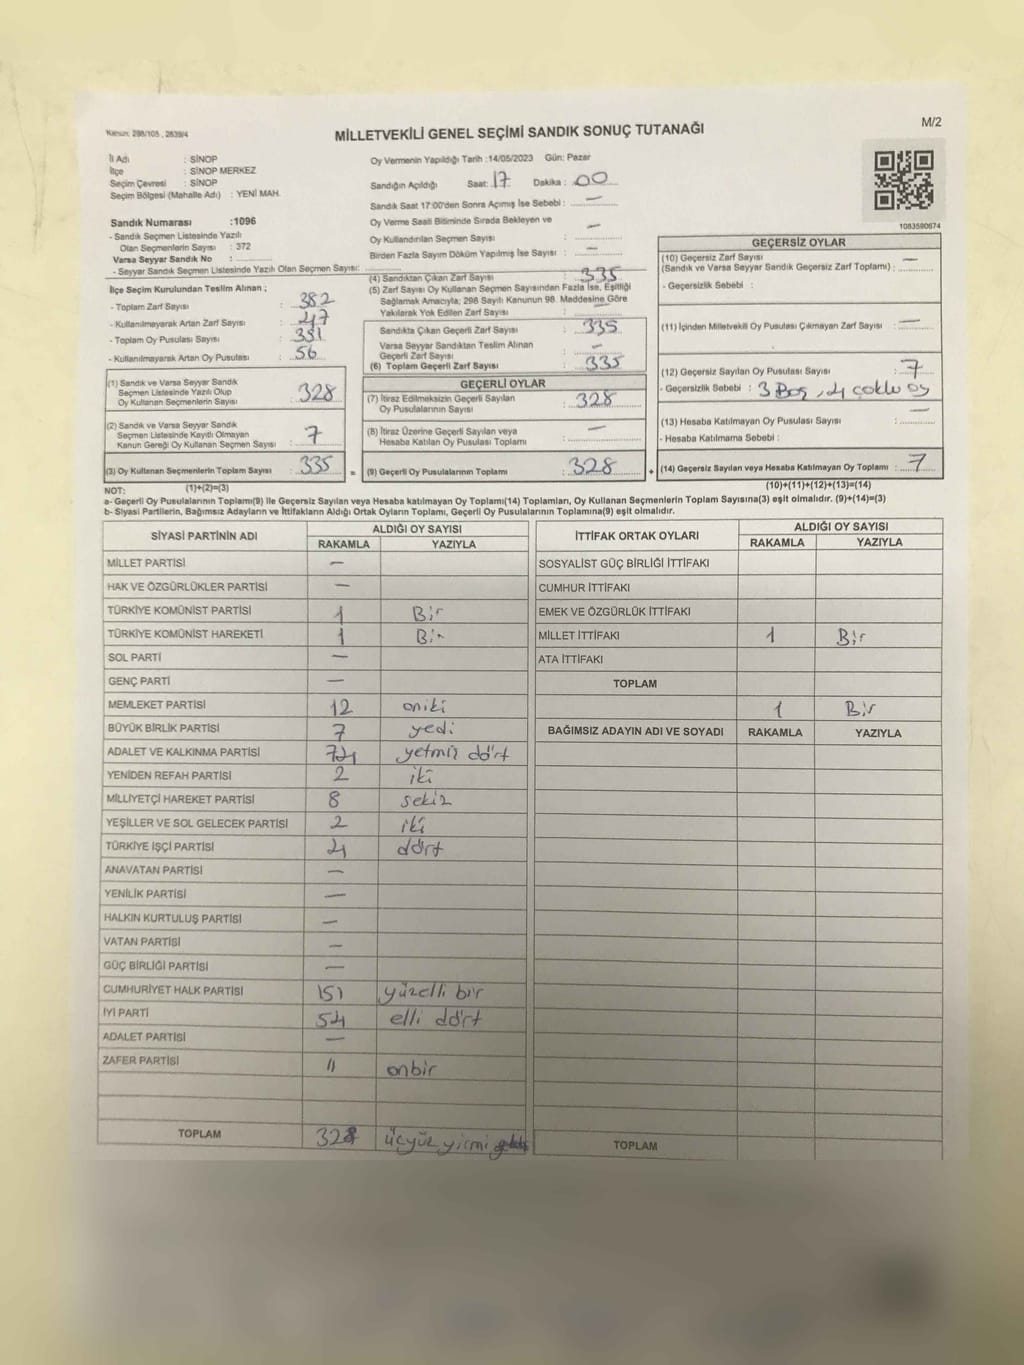 Kanun: 298/105 , 2839/4
MİLLETVEKİLİ GENEL SEÇİMİ SANDIK SONUÇ TUTANAĞI
M/2
İl Adı : SİNOP
İlçe : SİNOP MERKEZ
Seçim Çevresi : SİNOP
Seçim Bölgesi (Mahalle Adı) : YENİ MAH.
Sandık Numarası :1096
- Sandık Seçmen Listesinde Yazılı
Olan Seçmenlerin Sayısı : 372
Varsa Seyyar Sandık No :
- Seyyar Sandık Seçmen Listesinde Yazılı Olan Seçmen Sayısı:
İlçe Seçim Kurulundan Teslim Alınan ;
- Toplam Zarf Sayısı : 382
- Kullanılmayarak Artan Zarf Sayısı : 47
- Toplam Oy Pusulası Sayısı : 351
- Kullanılmayarak Artan Oy Pusulası : 56
(1) Sandık ve Varsa Seyyar Sandık
Seçmen Listesinde Yazılı Olup
Oy Kullanan Seçmenlerin Sayısı : 328
(2) Sandık ve Varsa Seyyar Sandık
Seçmen Listesinde Kayıtlı Olmayan
Kanun Gereği Oy Kullanan Seçmen Sayısı : 7
(3) Oy Kullanan Seçmenlerin Toplam Sayısı : 335
Oy Vermenin Yapıldığı Tarih :14/05/2023 Gün: Pazar
Sandığın Açıldığı Saat: 17 Dakika : 00
Sandık Saat 17:00'den Sonra Açımış İse Sebebi : —
Oy Verme Saati Bitiminde Sırada Bekleyen ve
Oy Kullandırılan Seçmen Sayısı : —
Birden Fazla Sayım Döküm Yapılmış İse Sayısı : —
(4) Sandıktan Çıkan Zarf Sayısı : 335
(5) Zarf Sayısı Oy Kullanan Seçmen Sayısından Fazla İse, Eşitliği
Sağlamak Amacıyla; 298 Sayılı Kanunun 98. Maddesine Göre
Yakılarak Yok Edilen Zarf Sayısı : —
Sandıkta Çıkan Geçerli Zarf Sayısı : 335
Varsa Seyyar Sandıktan Teslim Alınan
Geçerli Zarf Sayısı : —
(6) Toplam Geçerli Zarf Sayısı : 335
GEÇERLİ OYLAR
(7) İtiraz Edilmeksizin Geçerli Sayılan
Oy Pusulalarının Sayısı : 328
(8) İtiraz Üzerine Geçerli Sayılan veya
Hesaba Katılan Oy Pusulası Toplamı : —
= (9) Geçerli Oy Pusulalarının Toplamı : 328
1083590674
GEÇERSİZ OYLAR
(10) Geçersiz Zarf Sayısı
(Sandık ve Varsa Seyyar Sandık Geçersiz Zarf Toplamı) : —
- Geçersizlik Sebebi :
(11) İçinden Milletvekili Oy Pusulası Çıkmayan Zarf Sayısı : —
(12) Geçersiz Sayılan Oy Pusulası Sayısı : 7
- Geçersizlik Sebebi : 3 Boş, 4 çoklu oy
(13) Hesaba Katılmayan Oy Pusulası Sayısı : —
- Hesaba Katılmama Sebebi :
+ (14) Geçersiz Sayılan veya Hesaba Katılmayan Oy Toplamı : 7
NOT: (1)+(2)=(3) (10)+(11)+(12)+(13)=(14)
a- Geçerli Oy Pusulalarının Toplamı(9) ile Geçersiz Sayılan veya Hesaba katılmayan Oy Toplamı(14) Toplamları, Oy Kullanan Seçmenlerin Toplam Sayısına(3) eşit olmalıdır. (9)+(14)=(3)
b- Siyasi Partilerin, Bağımsız Adayların ve İttifakların Aldığı Ortak Oyların Toplamı, Geçerli Oy Pusulalarının Toplamına(9) eşit olmalıdır.
SİYASİ PARTİNİN ADI ALDIĞI OY SAYISI
RAKAMLA YAZIYLA
MİLLET PARTİSİ —
HAK VE ÖZGÜRLÜKLER PARTİSİ —
TÜRKİYE KOMÜNİST PARTİSİ 1 Bir
TÜRKİYE KOMÜNİST HAREKETİ 1 Bir
SOL PARTİ —
GENÇ PARTİ —
MEMLEKET PARTİSİ 12 oniki
BÜYÜK BİRLİK PARTİSİ 7 yedi
ADALET VE KALKINMA PARTİSİ 74 yetmiş dört
YENİDEN REFAH PARTİSİ 2 iki
MİLLİYETÇİ HAREKET PARTİSİ 8 sekiz
YEŞİLLER VE SOL GELECEK PARTİSİ 2 iki
TÜRKİYE İŞÇİ PARTİSİ 4 dört
ANAVATAN PARTİSİ —
YENİLİK PARTİSİ —
HALKIN KURTULUŞ PARTİSİ —
VATAN PARTİSİ —
GÜÇ BİRLİĞİ PARTİSİ —
CUMHURİYET HALK PARTİSİ 151 yüzelli bir
İYİ PARTİ 54 elli dört
ADALET PARTİSİ —
ZAFER PARTİSİ 11 onbir
TOPLAM 328 üçyüz yirmi
İTTİFAK ORTAK OYLARI ALDIĞI OY SAYISI
RAKAMLA YAZIYLA
SOSYALİST GÜÇ BİRLİĞİ İTTİFAKI
CUMHUR İTTİFAKI
EMEK VE ÖZGÜRLÜK İTTİFAKI
MİLLET İTTİFAKI 1 Bir
ATA İTTİFAKI
TOPLAM 1 Bir
BAĞIMSIZ ADAYIN ADI VE SOYADI RAKAMLA YAZIYLA
TOPLAM